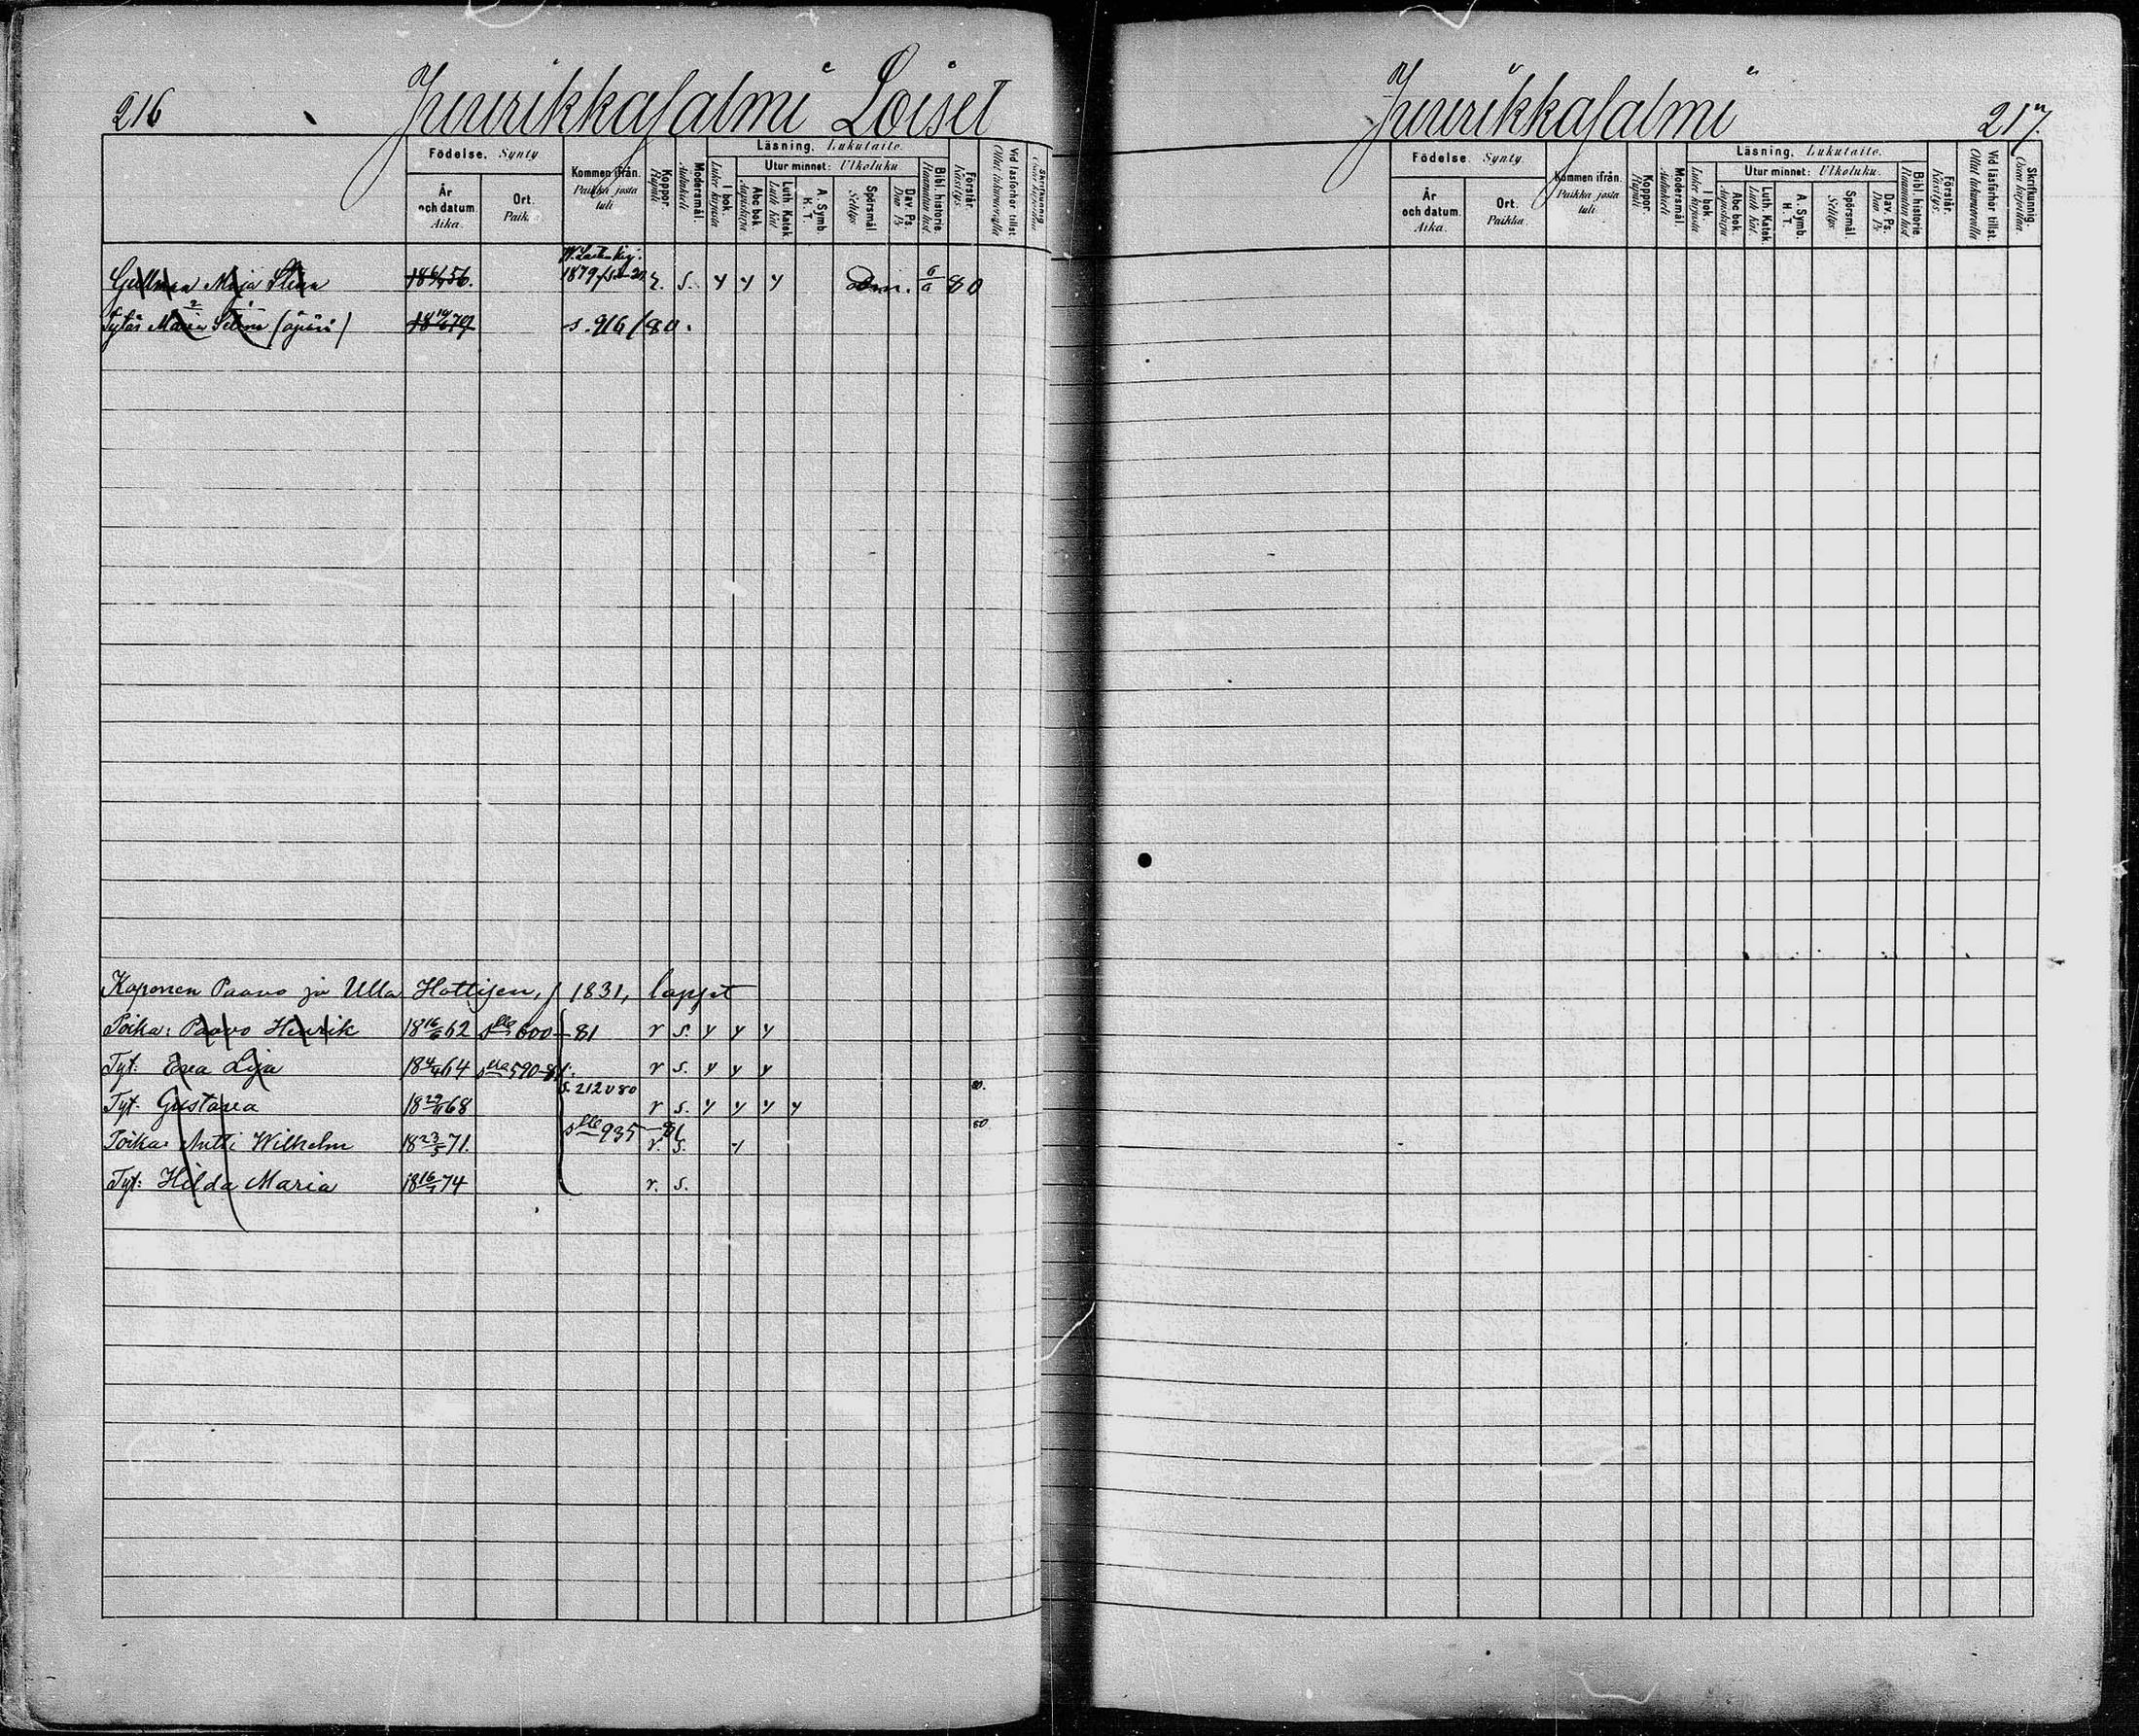 216
Juurikkasalmi Loiset
Födelse. Synty
År och datum. Aika.
Ort. Paikka
Kommen ifrån. Paikka josta tuli
Koppor. Rupuli
Modersmål. Äidinkieli
Läsning. Lukutaito.
I bok. Lukee kirjasta
Utur minnet: Ulkoluku
Abc bok. Aapiskirja
Luth. Katek. Luth. Kat.
A. Symb. H. T.
Spörsmål Selitys
Dav. Ps. Dav. Ps
Bibl. historie. Raamatun hist.
Förstår. Käsitys.
Vid läsförhör tillst. Ollut lukuvuorolla
Skrifkunnig. Osaa kirjoittaa
Gullman Maja Stina 18 56. 1879 r. s. y y y 6/a 80
Tytär Maria Selina (äpärä) 18 79 s. 916/80.
Koponen Paavo ja Ulla Hottisen, s 1831, lapset
Poika: Paavo Henrik 18 16/6 62 slle 600-81 r s. y y y
Tyt: Eva Lisa 18 4/4 64 slle 590-81. r s. y y y
s. 212 v 80
Tyt. Gustava 18 29/11 68 r s. y y y y 80.
slle 935-81
Poika: Antti Wilhelm 18 23/5 71. r. s. 80
Tyt: Hilda Maria 18 16/1 74 r. s.
Juurikkasalmi
217.
Födelse. Synty.
År och datum. Aika.
Ort. Paikka.
Kommen ifrån. Paikka josta tuli.
Koppor. Rupuli
Modersmål. Äidinkieli
Läsning. Lukutaito.
I bok. Lukee kirjasta
Utur minnet: Ulkoluku.
Abc bok. Aapiskirja
Luth. Katek. Luth. Kat.
A. Symb. H. T.
Spörsmål. Selitys.
Dav. Ps. Dav. Ps
Bibl. historie. Raamatun hist.
Förstår. Käsitys.
Vid läsförhör tillst. Ollut lukuvuorolla
Skrifkunnig. Osaa kirjoittaa.